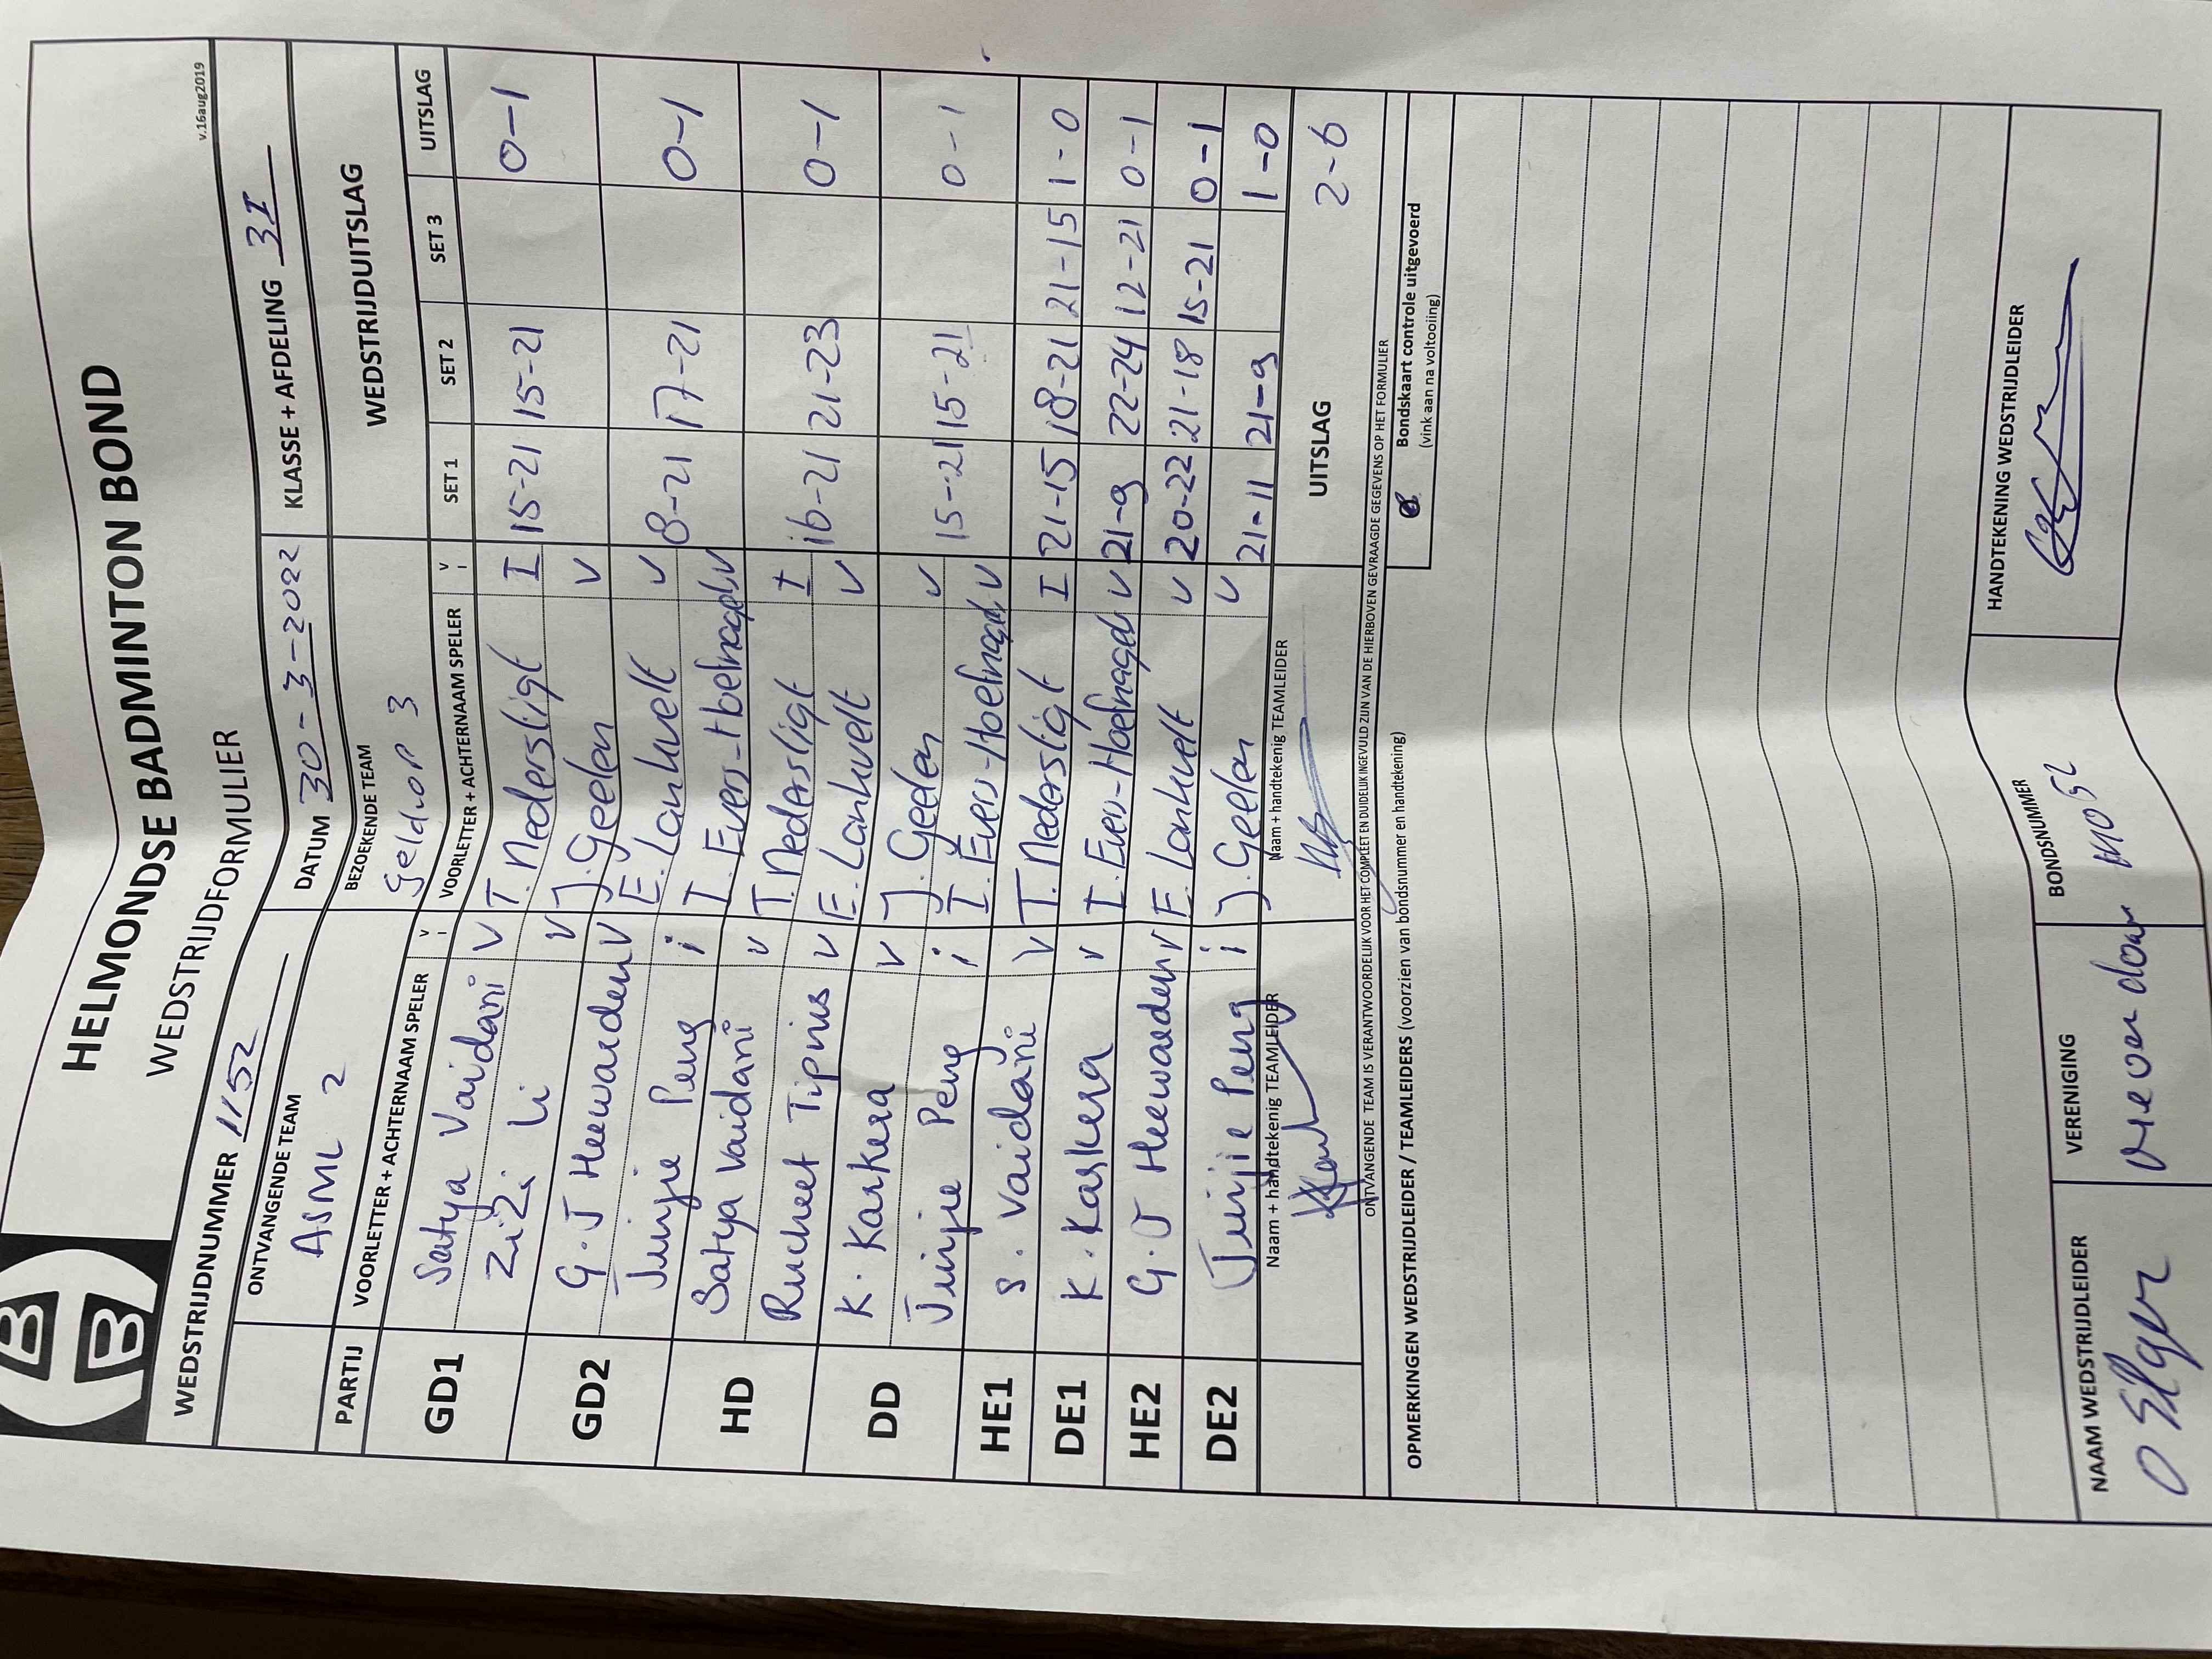 HELMONDSE BADMINTON BOND
WEDSTRIJDFORMULIER
v.16aug2019
WEDSTRIJDNUMMER 1152 DATUM 30-3-2022 KLASSE + AFDELING 3I
ONTVANGENDE TEAM BEZOEKENDE TEAM WEDSTRIJDUITSLAG
ASML 2 Geldrop 3
PARTIJ VOORLETTER + ACHTERNAAM SPELER V I VOORLETTER + ACHTERNAAM SPELER V I SET 1 SET 2 SET 3 UITSLAG
GD1 Satya Vaidani V T. Nedersligt I 15-21 15-21 0-1
Zizi Li V J. Geelen V
GD2 G.J Heewarden V E. Lankvelt V 8-21 17-21 0-1
Junjie Peng i I. Evers-Hoefnagels V
HD Satya Vaidani V T. Nedersligt I 16-21 21-23 0-1
Rucheet Tipnis V E. Lankvelt V
DD K. Karkera V J. Geelen V 15-21 15-21 0-1
Junjie Peng i I. Evers-Hoefnagels V
HE1 S. Vaidani V T. Nedersligt I 21-15 18-21 21-15 1-0
DE1 K. Karkera V I. Evers-Hoefnagels V 21-9 22-24 12-21 0-1
HE2 G.J Heewarden V E. Lankvelt V 20-22 21-18 15-21 0-1
DE2 Junjie Peng i J. Geelen V 21-11 21-9 1-0
Naam + handtekenig TEAMLEIDER Naam + handtekenig TEAMLEIDER UITSLAG 2-6
ONTVANGENDE TEAM IS VERANTWOORDELIJK VOOR HET COMPLEET EN DUIDELIJK INGEVULD ZIJN VAN DE HIERBOVEN GEVRAAGDE GEGEVENS OP HET FORMULIER
OPMERKINGEN WEDSTRIJDLEIDER / TEAMLEIDERS (voorzien van bondsnummer en handtekening) Bondskaart controle uitgevoerd
(vink aan na voltooiing)
NAAM WEDSTRIJDLEIDER VERENIGING BONDSNUMMER HANDTEKENING WEDSTRIJDLEIDER